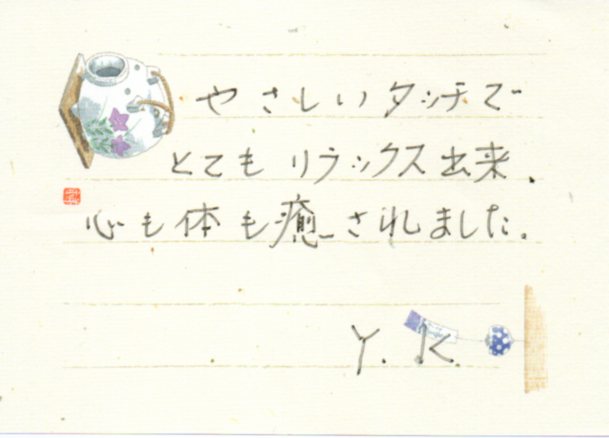 やさしいタッチで
とてもリラックス出来、
心も体も癒されました。
Y. K.